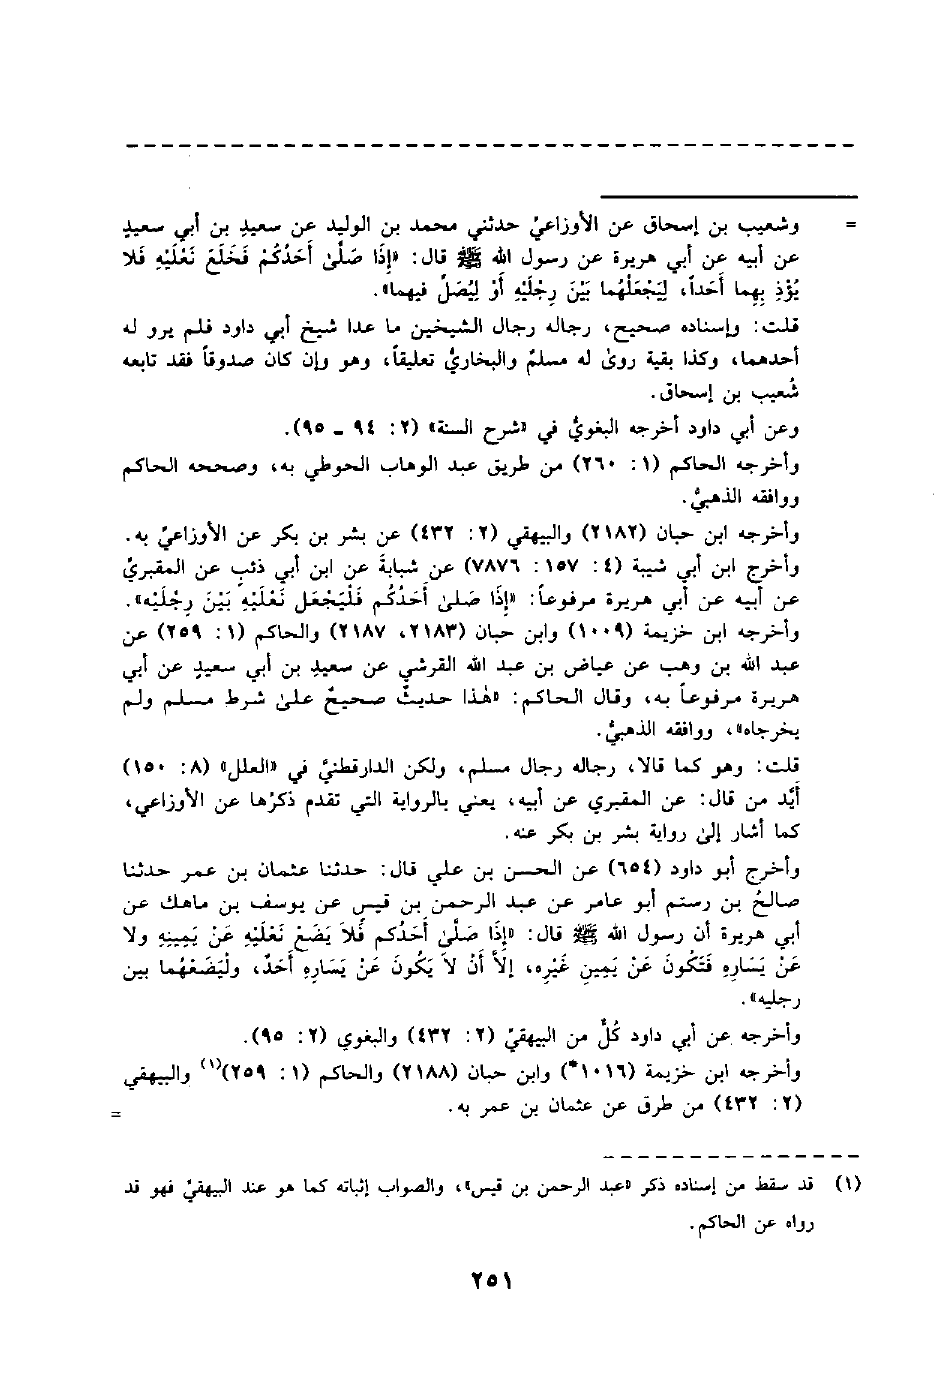 = وشعيب بن إسحاق عن الأوزاعيِّ حدثني محمد بن الوليد عن سعيدِ بن أبي سعيدٍ
عن أبيه عن أبي هريرة عن رسول الله ﷺ قال: «إِذَا صَلَّىٰ أَحَدُكُمْ فَخَلَعَ نَعْلَيْهِ فَلا
يُؤْذِ بِهِما أَحَداً، لِيَجْعَلْهُما بَيْنَ رِجْلَيْهِ أَوْ لِيُصَلِّ فيهما».
قلت: وإسناده صحيح، رجاله رجال الشيخين ما عدا شيخ أبي داود فلم يرو له
أحدهما، وكذا بقية روىٰ له مسلمٌ والبخاريُّ تعليقاً، وهو وإن كان صدوقاً فقد تابعه
شُعيب بن إسحاق.
وعن أبي داود أخرجه البغويُّ في «شرح السنة» (٢: ٩٤ ـ ٩٥).
وأخرجه الحاكم (١: ٢٦٠) من طريق عبد الوهاب الحوطي به، وصححه الحاكم
ووافقه الذهبيُّ.
وأخرجه ابن حبان (٢١٨٢) والبيهقي (٢: ٤٣٢) عن بشر بن بكر عن الأوزاعيِّ به.
وأخرج ابن أبي شيبة (٤: ١٥٧: ٧٨٧٦) عن شبابةَ عن ابن أبي ذئبٍ عن المقبريِّ
عن أبيه عن أبي هريرة مرفوعاً: «إِذَا صَلىٰ أَحَدُكُم فَلْيَجْعَل نَعْلَيْهِ بَيْنَ رِجْلَيْه».
وأخرجه ابن خزيمة (١٠٠٩) وابن حبان (٢١٨٣، ٢١٨٧) والحاكم (١: ٢٥٩) عن
عبد الله بن وهب عن عياض بن عبد الله القرشي عن سعيدِ بن أبي سعيدٍ عن أبي
هريرة مرفوعاً به، وقال الحاكم: «هٰذا حديثٌ صحيحٌ علىٰ شرط مسلم ولم
يخرجاه»، ووافقه الذهبيُّ.
قلت: وهو كما قالا، رجاله رجال مسلم، ولكن الدارقطنيَّ في «العلل» (٨: ١٥٠)
أيَّد من قال: عن المقبري عن أبيه، يعني بالرواية التي تقدم ذكرُها عن الأوزاعي،
كما أشار إلىٰ رواية بشر بن بكر عنه.
وأخرج أبو داود (٦٥٤) عن الحسن بن علي قال: حدثنا عثمان بن عمر حدثنا
صالحُ بن رستم أبو عامر عن عبد الرحمن بن قيس عن يوسف بن ماهك عن
أبي هريرة أن رسول الله ﷺ قال: «إِذَا صَلَّىٰ أَحَدُكم فَلَا يَضَعْ نَعْلَيْهِ عَنْ يَمِينِهِ ولا
عَنْ يَسَارِهِ فَتَكُونَ عَنْ يَمِينِ غَيْرِه، إلَّا أَنْ لَا يَكُونَ عَنْ يَسَارِهِ أَحَدٌ، ولْيَضَعْهُما بين
رجليه».
وأخرجه عن أبي داود كُلٌّ من البيهقيِّ (٢: ٤٣٢) والبغوي (٢: ٩٥).
وأخرجه ابن خزيمة (١٠١٦*) وابن حبان (٢١٨٨) والحاكم (١: ٢٥٩)(١) والبيهقي
(٢: ٤٣٢) من طرق عن عثمان بن عمر به. =
(١) قد سقط من إسناده ذكر «عبد الرحمن بن قيس»، والصواب إثباته كما هو عند البيهقيِّ فهو قد
رواه عن الحاكم.
٢٥١